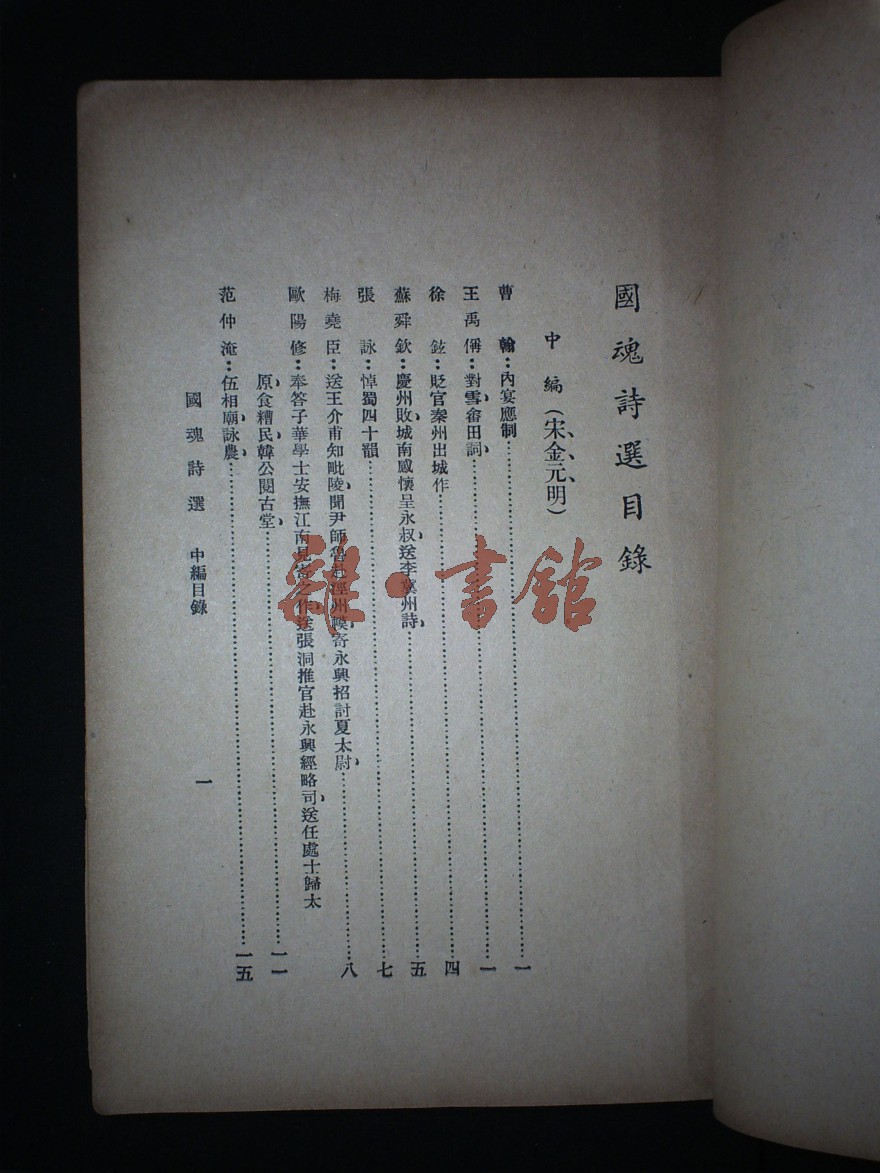 國魂詩選目錄
中編（宋、金、元、明）
曹翰：內宴應制……一
王禹偁：對雪、畬田詞、……一
徐鉉：貶官秦州出城作……四
蘇舜欽：慶州敗、城南感懷呈永叔、送李冀州詩、……五
張詠：悼蜀四十韻……七
梅堯臣：送王介甫知毗陵、聞尹師魯赴涇州幙、寄永興招討夏太尉、……八
歐陽修：奉答子華學士安撫江南見寄之作、送張洞推官赴永興經略司、送任處士歸太
原、食糟民、韓公閱古堂、……一一
范仲淹：伍相廟、詠農、……一五
國魂詩選 中編目錄 一
雜·書館